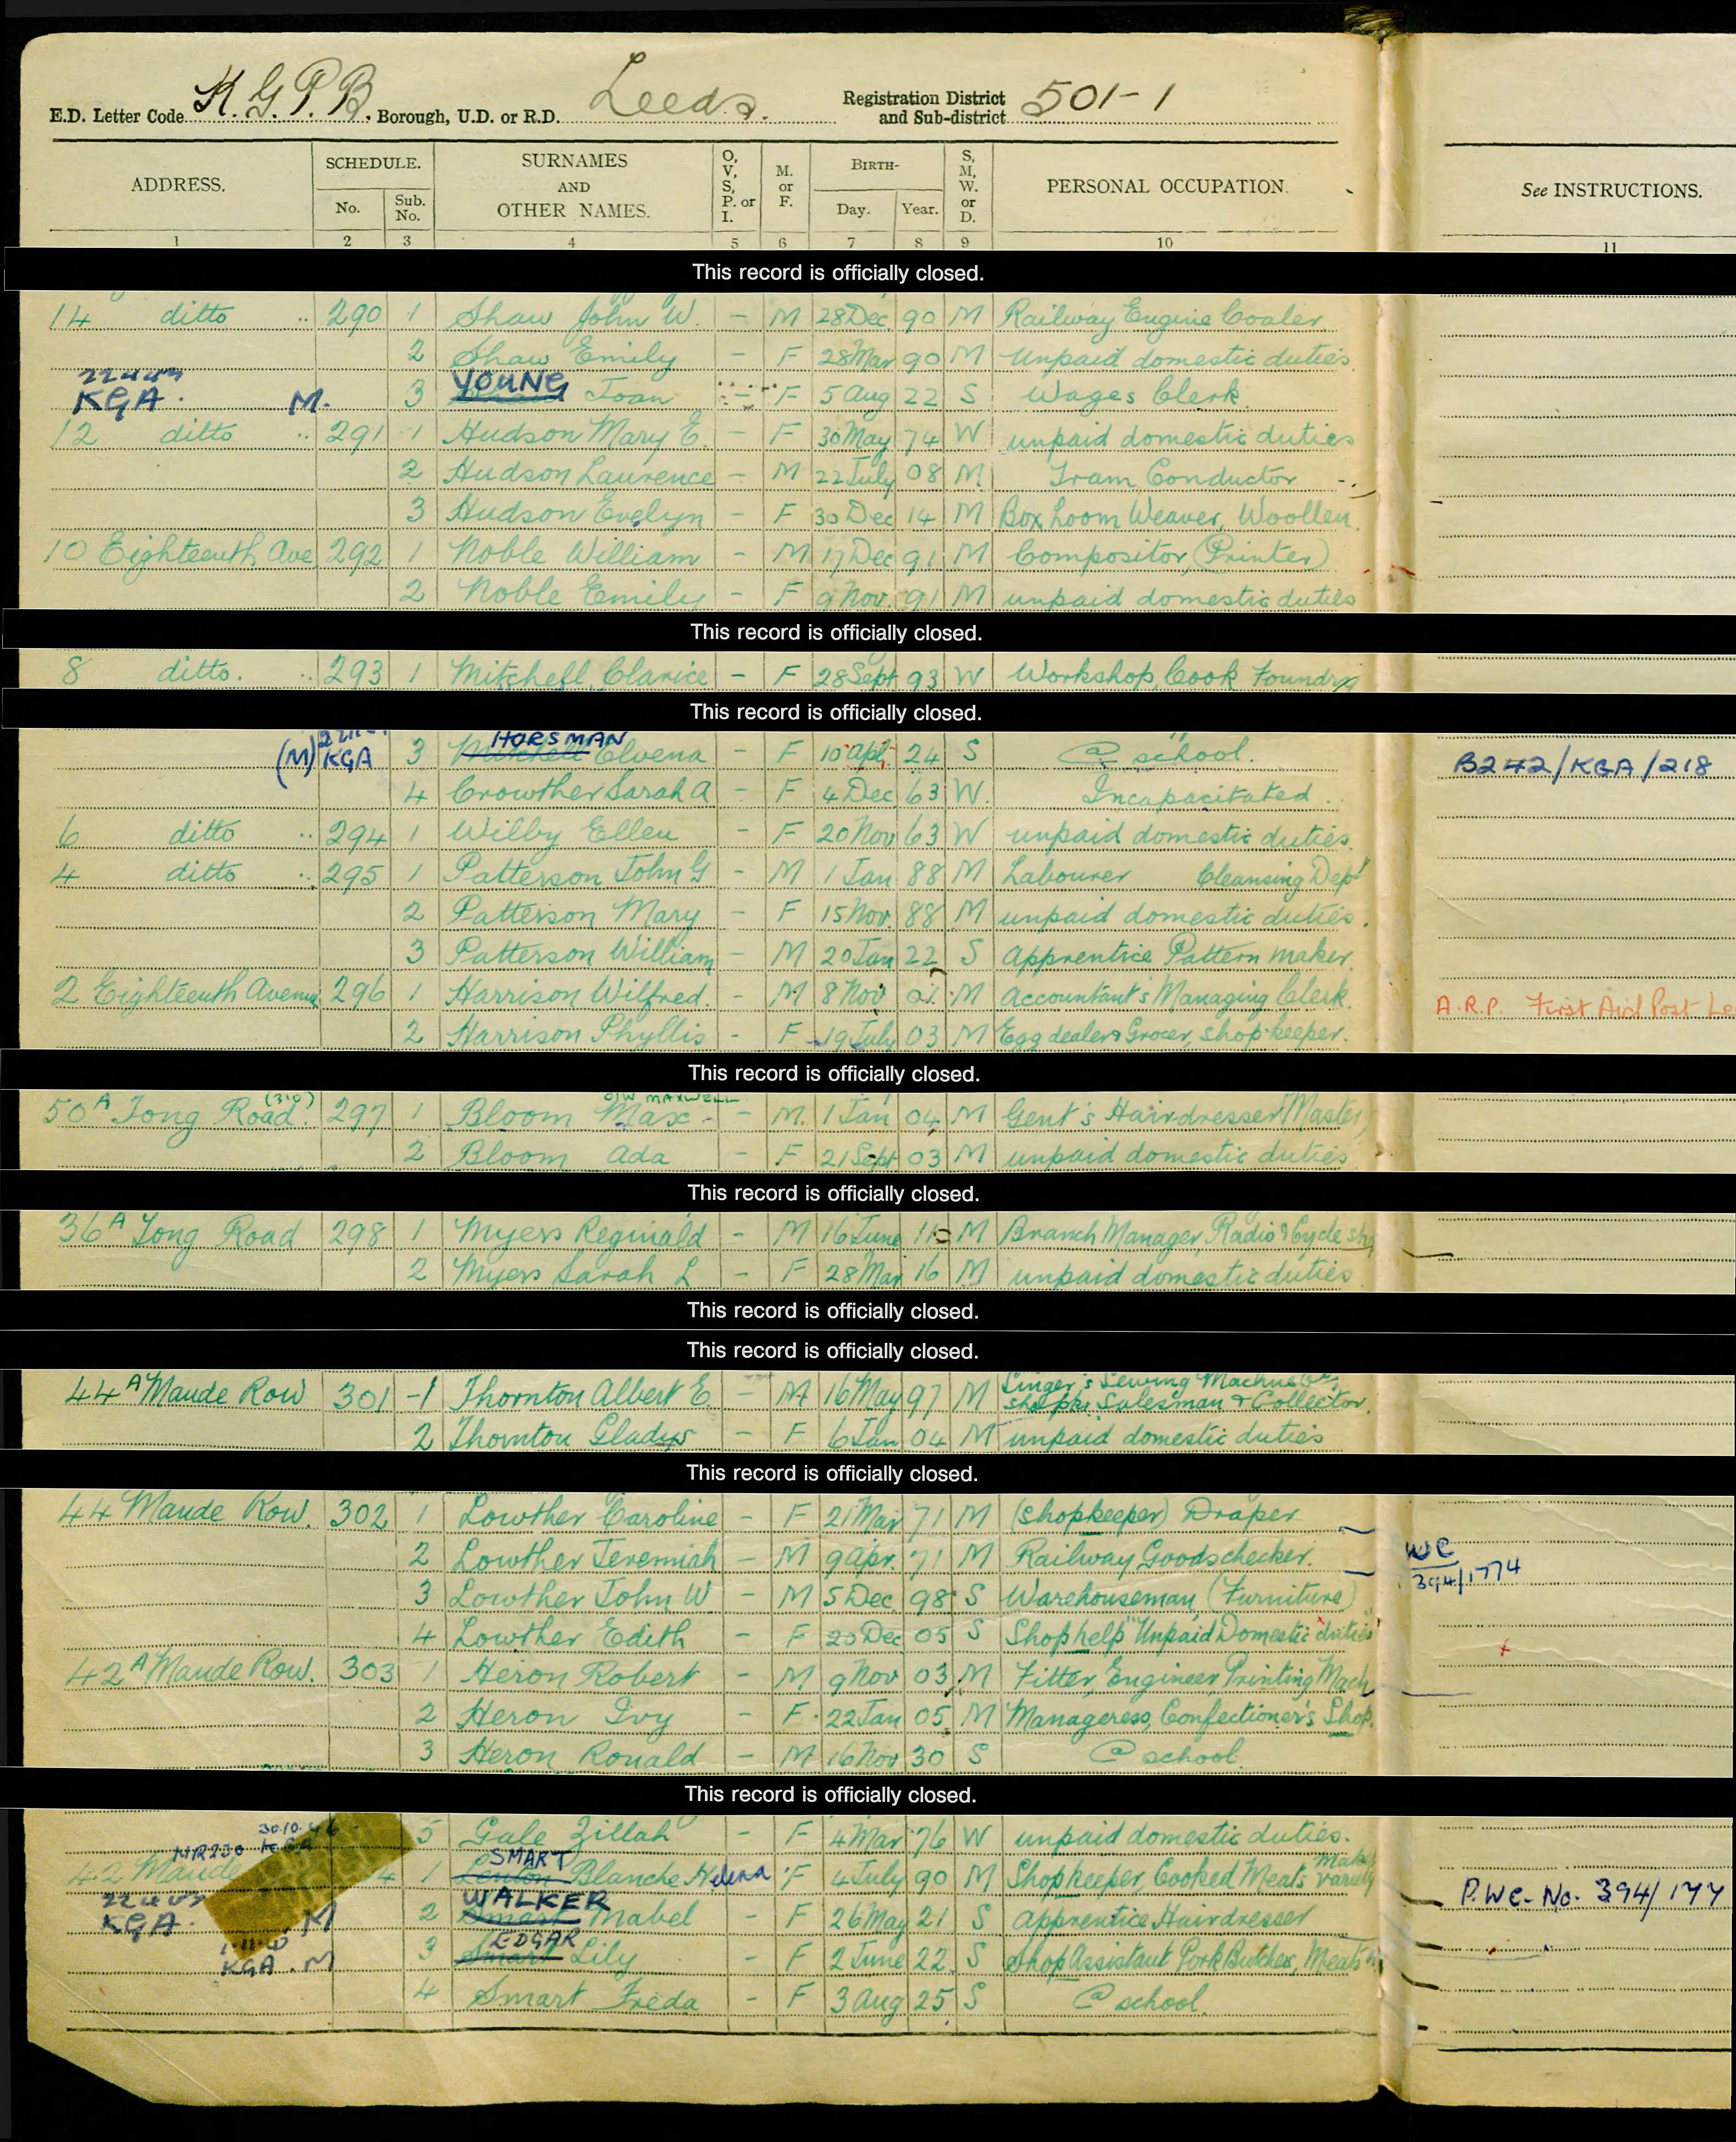 E.D. Letter Code K.G.P.B. Borough, U.D. or R.D. Leeds. Registration District and Sub-district 501-1
ADDRESS. SCHEDULE. No. Sub. No. SURNAMES AND OTHER NAMES. O, V, S, P. or I. M. or F. BIRTH- Day. Year. S, M, W. or D. PERSONAL OCCUPATION. See INSTRUCTIONS.
1 2 3 4 5 6 7 8 9 10 11
This record is officially closed.
14 ditto 290 1 Shaw John W. - M 28 Dec 90 M Railway Engine Coaler
2 Shaw Emily - F 28 Mar 90 M Unpaid domestic duties
KGA. M. 3 YOUNG Joan - F 5 Aug 22 S Wages Clerk
12 ditto 291 1 Hudson Mary E. - F 30 May 74 W unpaid domestic duties
2 Hudson Laurence - M 22 July 08 M Tram Conductor
3 Hudson Evelyn - F 30 Dec 14 M Box Loom Weaver, Woollen.
10 Eighteenth Ave 292 1 Noble William - M 17 Dec 91 M Compositor, (Printer)
2 Noble Emily - F 9 Nov. 91 M unpaid domestic duties
This record is officially closed.
8 ditto. 293 1 Mitchell Clarice - F 28 Sept 93 W Workshop, Cook Foundry
This record is officially closed.
(M) KGA 3 Mitchell HORSMAN Elvena - F 10 Apl 24 S @ school. B242/KGA/218
4 Crowther Sarah A - F 4 Dec 63 W. Incapacitated
6 ditto 294 1 Wilby Ellen - F 20 Nov 63 W unpaid domestic duties.
4 ditto 295 1 Patterson John G - M 1 Jan 88 M Labourer Cleansing Dept
2 Patterson Mary - F 15 Nov. 88 M unpaid domestic duties.
3 Patterson William - M 20 Jan 22 S Apprentice Pattern maker.
2 Eighteenth Avenue 296 1 Harrison Wilfred. - M 8 Nov M Accountant's Managing Clerk. A.R.P. First Aid Post Le
2 Harrison Phyllis - F 19 July 03 M Egg dealer & Grocer, shop-keeper.
This record is officially closed.
50A Tong Road. (310) 297 1 Bloom Max O/W MAXWELL - M. 1 Jan 04 M Gent's Hairdresser Master,
2 Bloom Ada - F 21 Sept 03 M unpaid domestic duties
This record is officially closed.
36A Tong Road 298 1 Myers Reginald - M 16 June M Branch Manager, Radio & Cycle shp
2 Myers Sarah L - F 28 Mar 16 M unpaid domestic duties
This record is officially closed.
This record is officially closed.
44A Maude Row 301 -1 Thornton Albert E - M 16 May 97 M Singer's Sewing Machine Co. Salesman & Collector.
2 Thornton Gladys - F 6 Jan 04 M unpaid domestic duties
This record is officially closed.
44 Maude Row. 302 1 Lowther Caroline - F 21 Mar 71 M (shopkeeper) Draper
2 Lowther Jeremiah - M 9 Apr. 71 M Railway Goods checker. WC 394/1774
3 Lowther John W - M 5 Dec 98 S Warehouseman, (Furniture)
4 Lowther Edith - F 20 Dec 05 S Shop help "Unpaid Domestic duties"
42A Maude Row. 303 1 Heron Robert - M 9 Nov 03 M Fitter, Engineer, Printing Mach
2 Heron Ivy - F 22 Jan 05 M Manageress, Confectioner's Shop.
3 Heron Ronald - M 16 Nov 30 S @ school.
This record is officially closed.
30.10.46 5 Gale Zillah - F 4 Mar 76 W unpaid domestic duties.
42 Maude NR230 4 1 SMART Blanche Helena F 4 July 90 M Shopkeeper, Cooked Meats
KGA. M 2 Smart WALKER Mabel - F 26 May 21 S Apprentice Hairdresser P.WC. No. 394/177
KGA. M 3 Smart EDGAR Lily - F 2 June 22 S Shop Assistant Pork Butcher, Meats
4 Smart Freda - F 3 Aug 25 S @ school.